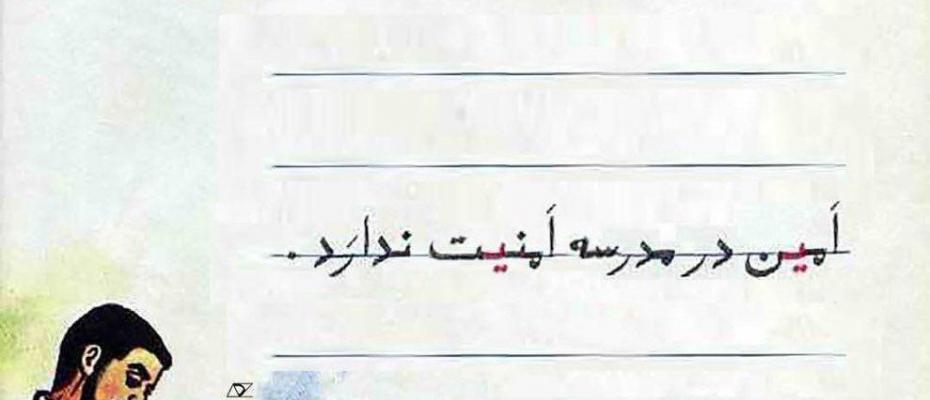 اَمین در مدرسه اَمنیت ندارَد.